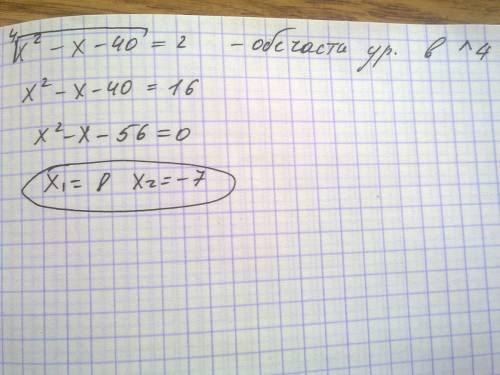 ⁴√x² - x - 40 = 2 - обе части ур. в ^4
x² - x - 40 = 16
x² - x - 56 = 0
x₁ = 8 x₂ = -7